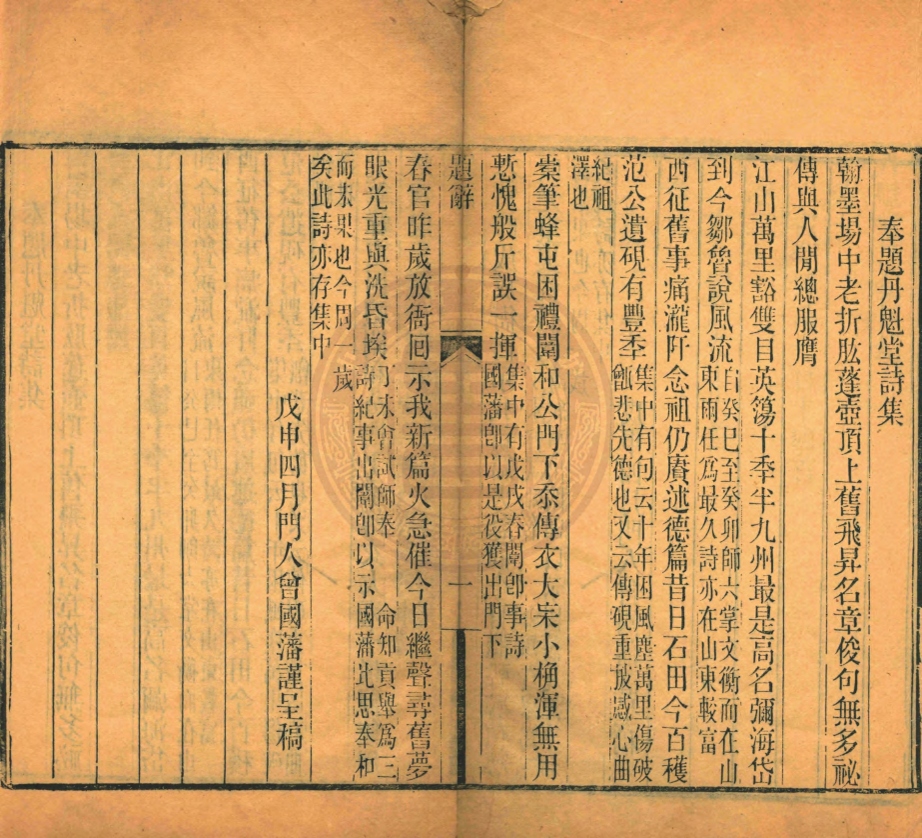 奉題丹魁堂詩集
翰墨場中老折肱蓬壺頂上舊飛昇名章俊句無多祕
傳與人閒總服膺
江山萬里豁雙目英簜十季半九州最是高名彌海岱
到今鄒魯說風流
自癸巳至癸卯師六掌文衡而在山
東兩任為最久詩亦在山東較富
西征舊事痛瀧阡念祖仍賡述德篇昔日石田今百穫
范公遺硯有豐季
集中有句云十年困風塵萬里傷破
甑悲先德也又云傳硯重披感心曲
紀祖
澤也
棠筆蜂屯困禮闈和公門下忝傳衣大宋小桷渾無用
慙愧般斤誤一揮
集中有戊戌春闈卽事詩
國藩卽以是役獲出門下
題辭
一
春官昨歲放衙囘示我新篇火急催今日繼聲尋舊夢
眼光重與洗昏埃
丁未會試師奉 命知貢舉為三
詩紀事出闈卽以示國藩此思奉和
而未果也今閒一歲
矣此詩亦存集中
戊申四月門人曾國藩謹呈稿